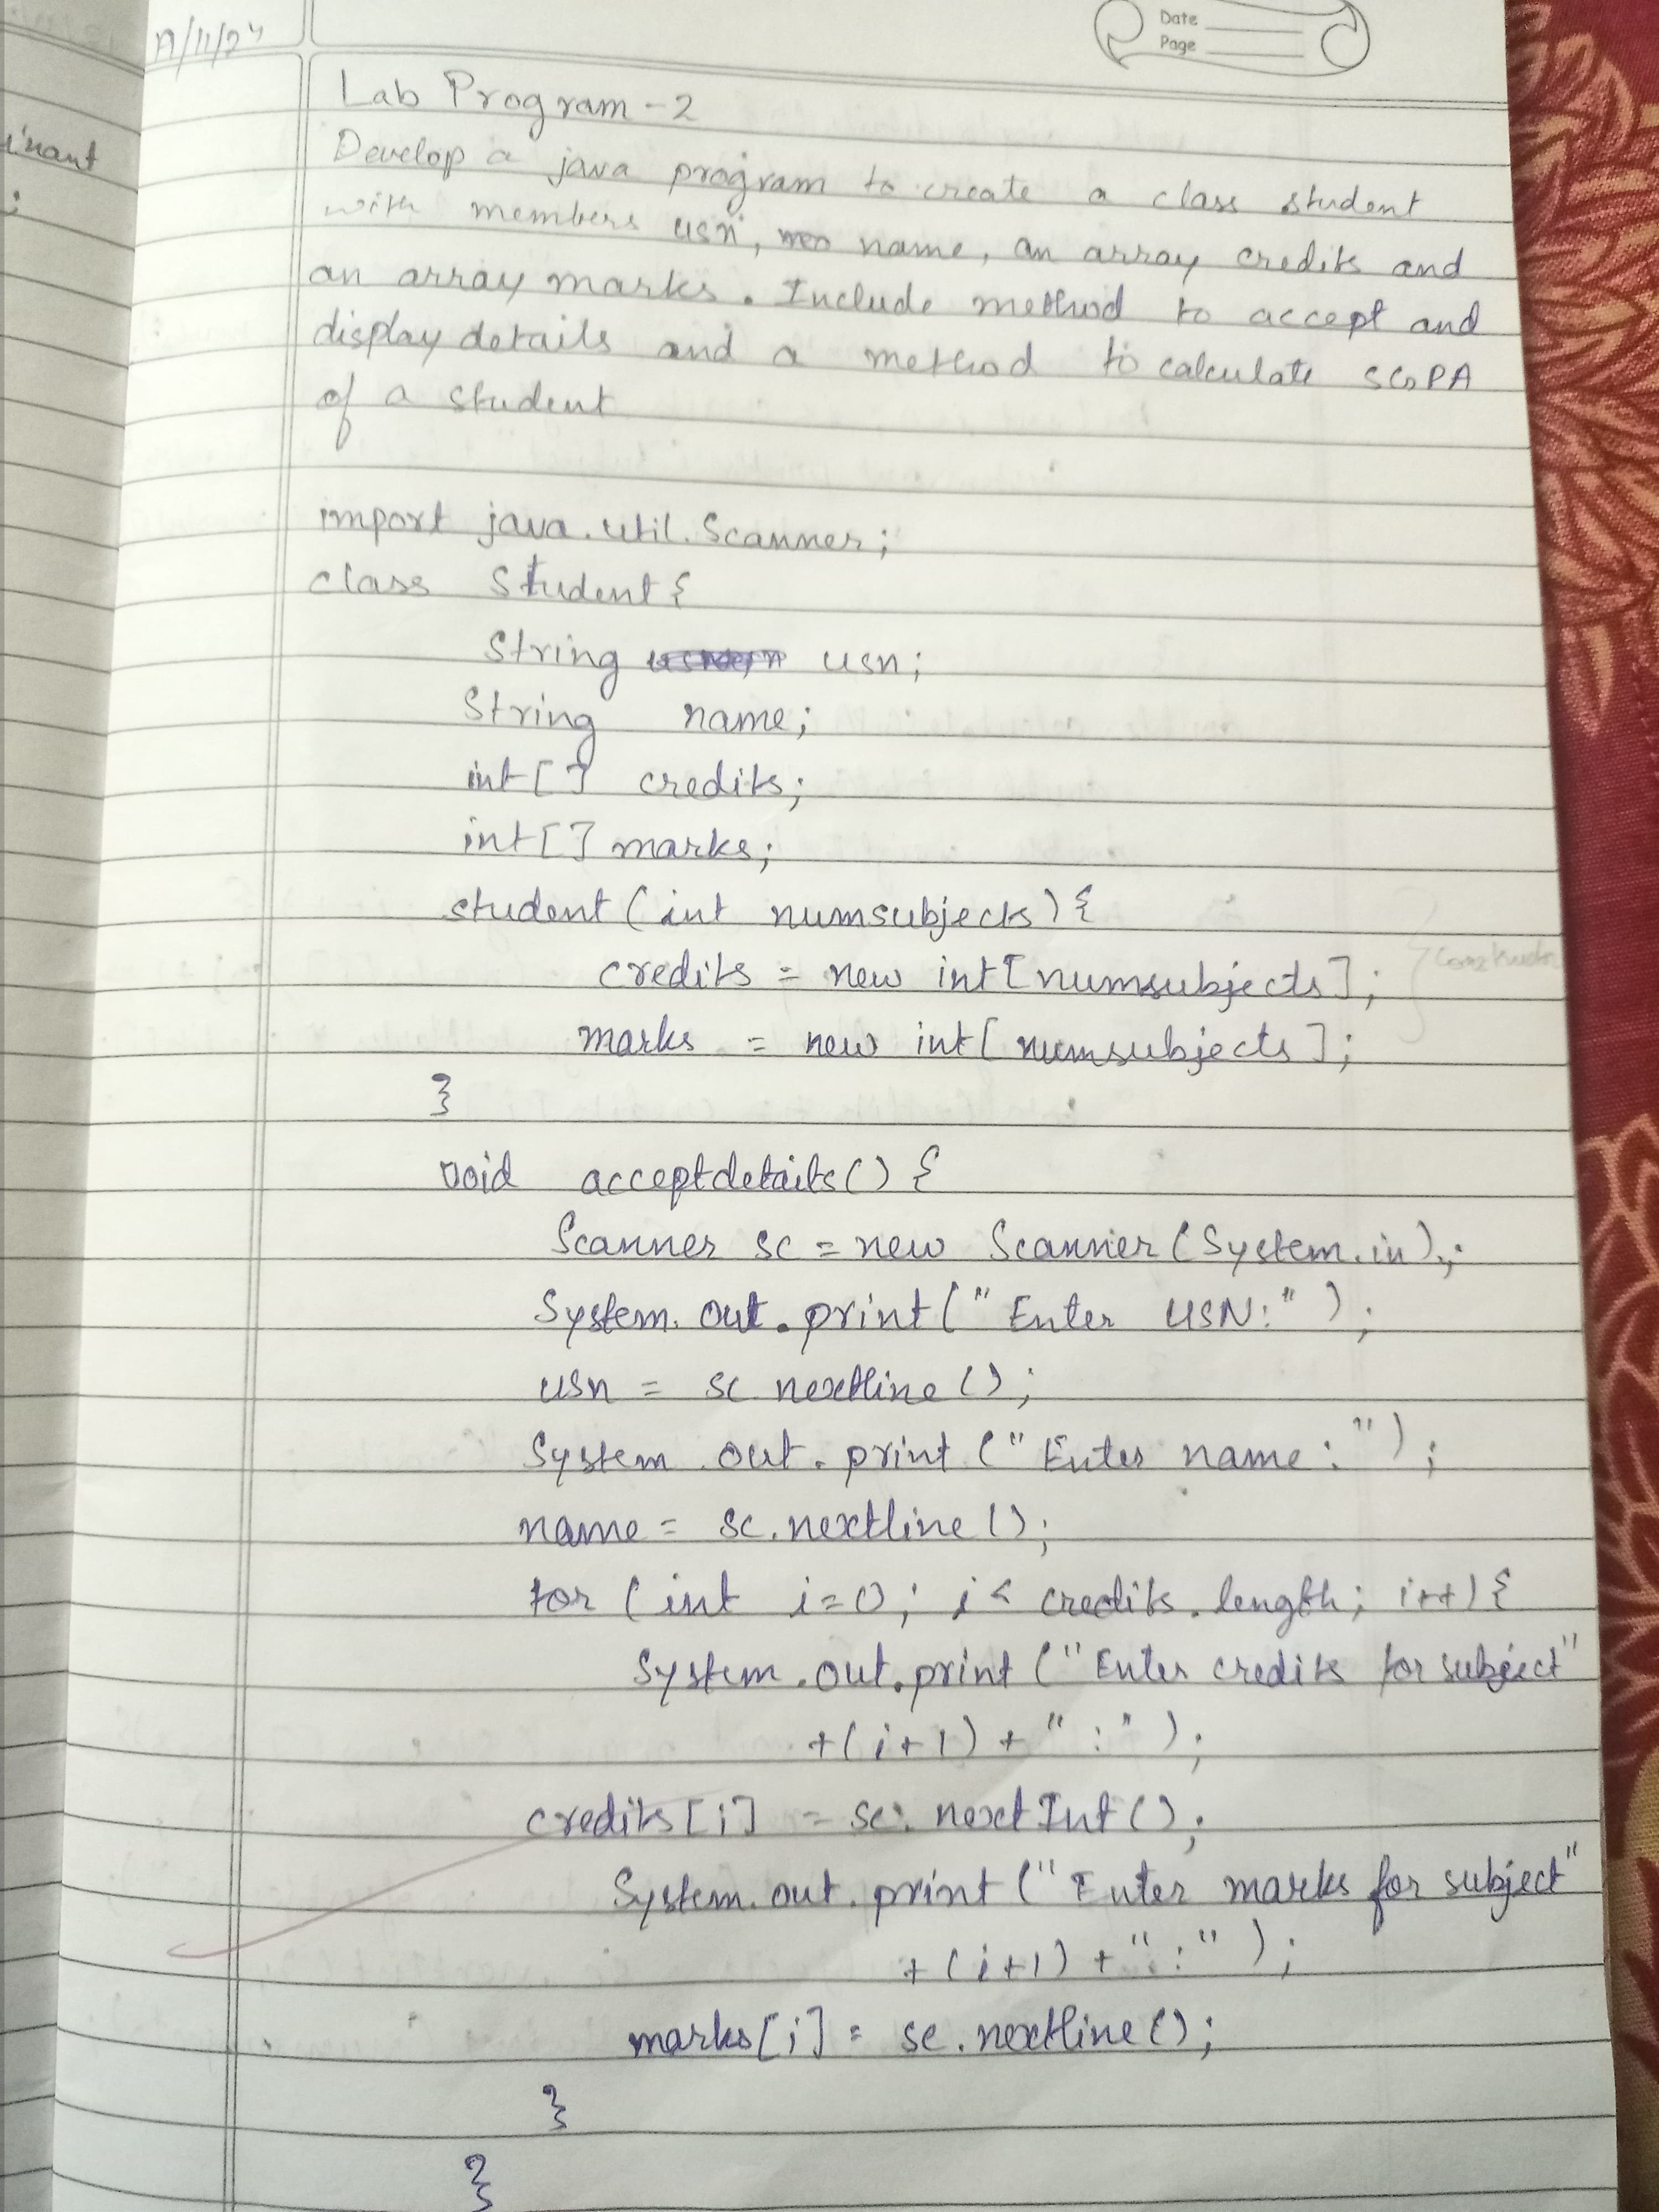 19/11/24
Date
Page
inant
;
Lab Program - 2
Develop a java program to create a class student
with members usn, name, an array credits and
an array marks. Include method to accept and
display details and a method to calculate SGPA
of a student
import java.util.Scanner;
class Student{
String usn;
String name;
int[] credits;
int[] marks;
student (int numsubjects) {
credits = new int[numsubjects];
marks = new int[numsubjects];
}
void acceptdetails() {
Scanner sc = new Scanner(System.in);
System.out.print("Enter USN:");
usn = sc.nextline();
System.out.print("Enter name:");
name = sc.nextline();
for (int i=0; i< credits.length; i++){
System.out.print("Enter credits for subject"
+(i+1)+":");
credits[i] = sc.nextInt();
System.out.print("Enter marks for subject"
+(i+1)+":");
marks[i] = sc.nextline();
}
}